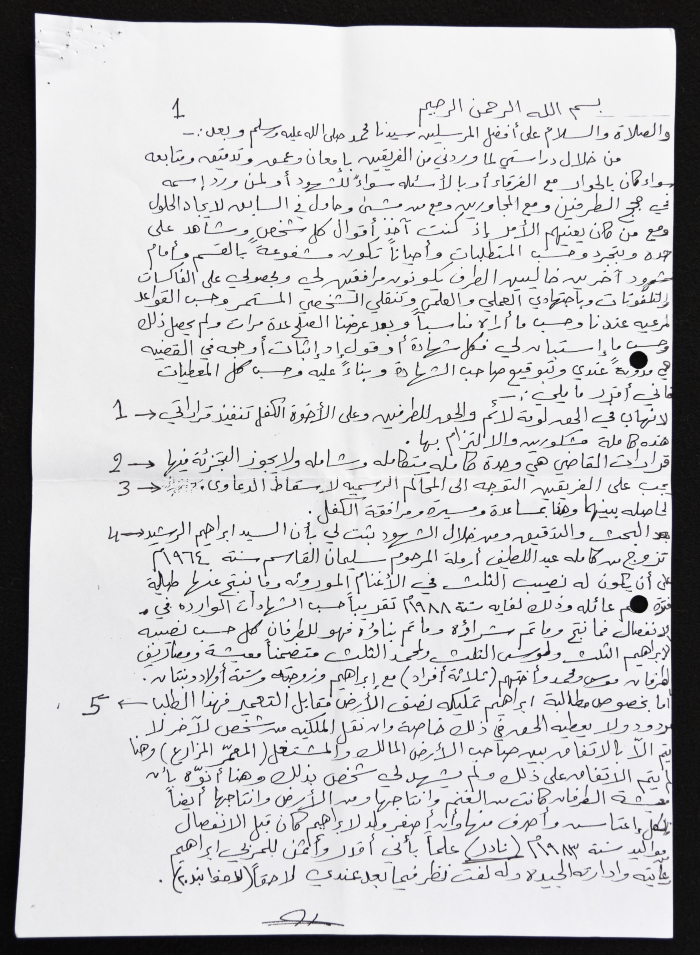 بسم الله الرحمن الرحيم 1
والصلاة والسلام على أفضل المرسلين سيدنا محمد صلى الله عليه وسلم وبعد :ـ
من خلال دراستي لما وردني من الفريقين بإمعان وعمق وتدقيق ومتابعه
سواء كان بالحوار مع الفرقاء أو بالأسئله سواءً للشهود أو لمن ورد إسمه
في حجج الطرفين ومع المجاورين ومع من مشى وحاول في السابق لايجاد الحلول
ومع من كان يعنيهم الأمر إذ كنت آخذ أقوال كل شخص وشاهد على
حده وبتجرد وحسب المتطلبات وأحياناً تكون مشفوعة بالقسم وأمام
شهود آخرين خاليين الطرف يكونون مرافقين لي وبحصولي على الفاكسات
والتلفونات وباجتهادي العملي والعلمي وتنقلي الشخصي المستمر وحسب القواعد
المرعيه عندنا وحسب ما أراه مناسباً وبعد عرضنا الصلح عدة مرات ولم يحصل ذلك
وحسب ما إستبان لي فكل شهادة أو قول أو إثبات أو حجه في القضيه
هي مدونة عندي وبتوقيع صاحب الشهادة وبناءً عليه وحسب كل المعطيات
فإني أقرر ما يلي :ـ
1 ← لانهاب في الحق لومة لائم والحق للطرفين وعلى الأخوة الكفل تنفيذ قراراتي
هذه كاملة مشكورين والالتزام بها .
2 ← قرارات القاضي هي وحدة كامله متكامله وشامله ولا يجوز التجزئة فيها
3 ← يجب على الفريقين التوجه الى المحاكم الرسميه لإسقاط الدعاوى .
الحاصله بينهما وهذا بمساعدة ومسيرة ومرافقة الكفل .
4 ← بعد البحث والتدقيق ومن خلال الشهود ثبت لي بأن السيد ابراهيم الرشيد
تزوج من كامله عبد اللطيف أرملة المرحوم سليمان القاسم سنة ١٩٦٤م
على أن يكون له نصيب الثلث في الأغنام الموروثه وما نتج عنها طيلة
فترة عائله وذلك لغاية سنة ١٩٨٨م تقريباً حسب الشهادات الوارده في
الانفصال فما نتج وما تم شراؤه وما تم بناؤه فهو للطرفان كل حسب نصيبه
لابراهيم الثلث ولموسى الثلث ولمحمد الثلث متضمناً معيشة ومصاريف
الطرفان موسى ومحمد وأختهم (ثلاثة أفراد) مع إبراهيم وزوجته وستة أولاد وبنتان .
5 ← أما بخصوص مطالبة ابراهيم تمليكه نصف الأرض مقابل التعمير فهذا الطلب
مردود ولا يعطيه الحق في ذلك خاصة وان نقل الملكيه من شخص لآخر لا
يتم الاّ بالاتفاق بين صاحب الأرض المالك والمشتغل (المعمّر المزارع) وهنا
لم يتم الاتفاق على ذلك ولم يشهد لي شخص بذلك وهنا أنوّه بأن
معيشة الطرفان كانت من الغنم وانتاجها ومن الأرض وانتاجها أيضاً
وأصرف منها وأن أصغر ولد لابراهيم كان قبل الانفصال
مواليد سنة ١٩٨٣م (نادر) علماً بأني أقدر وأثمن للمربي ابراهيم
وإدارته الجيدة وله لفت نظر فيما بعد عندي لاحقاً